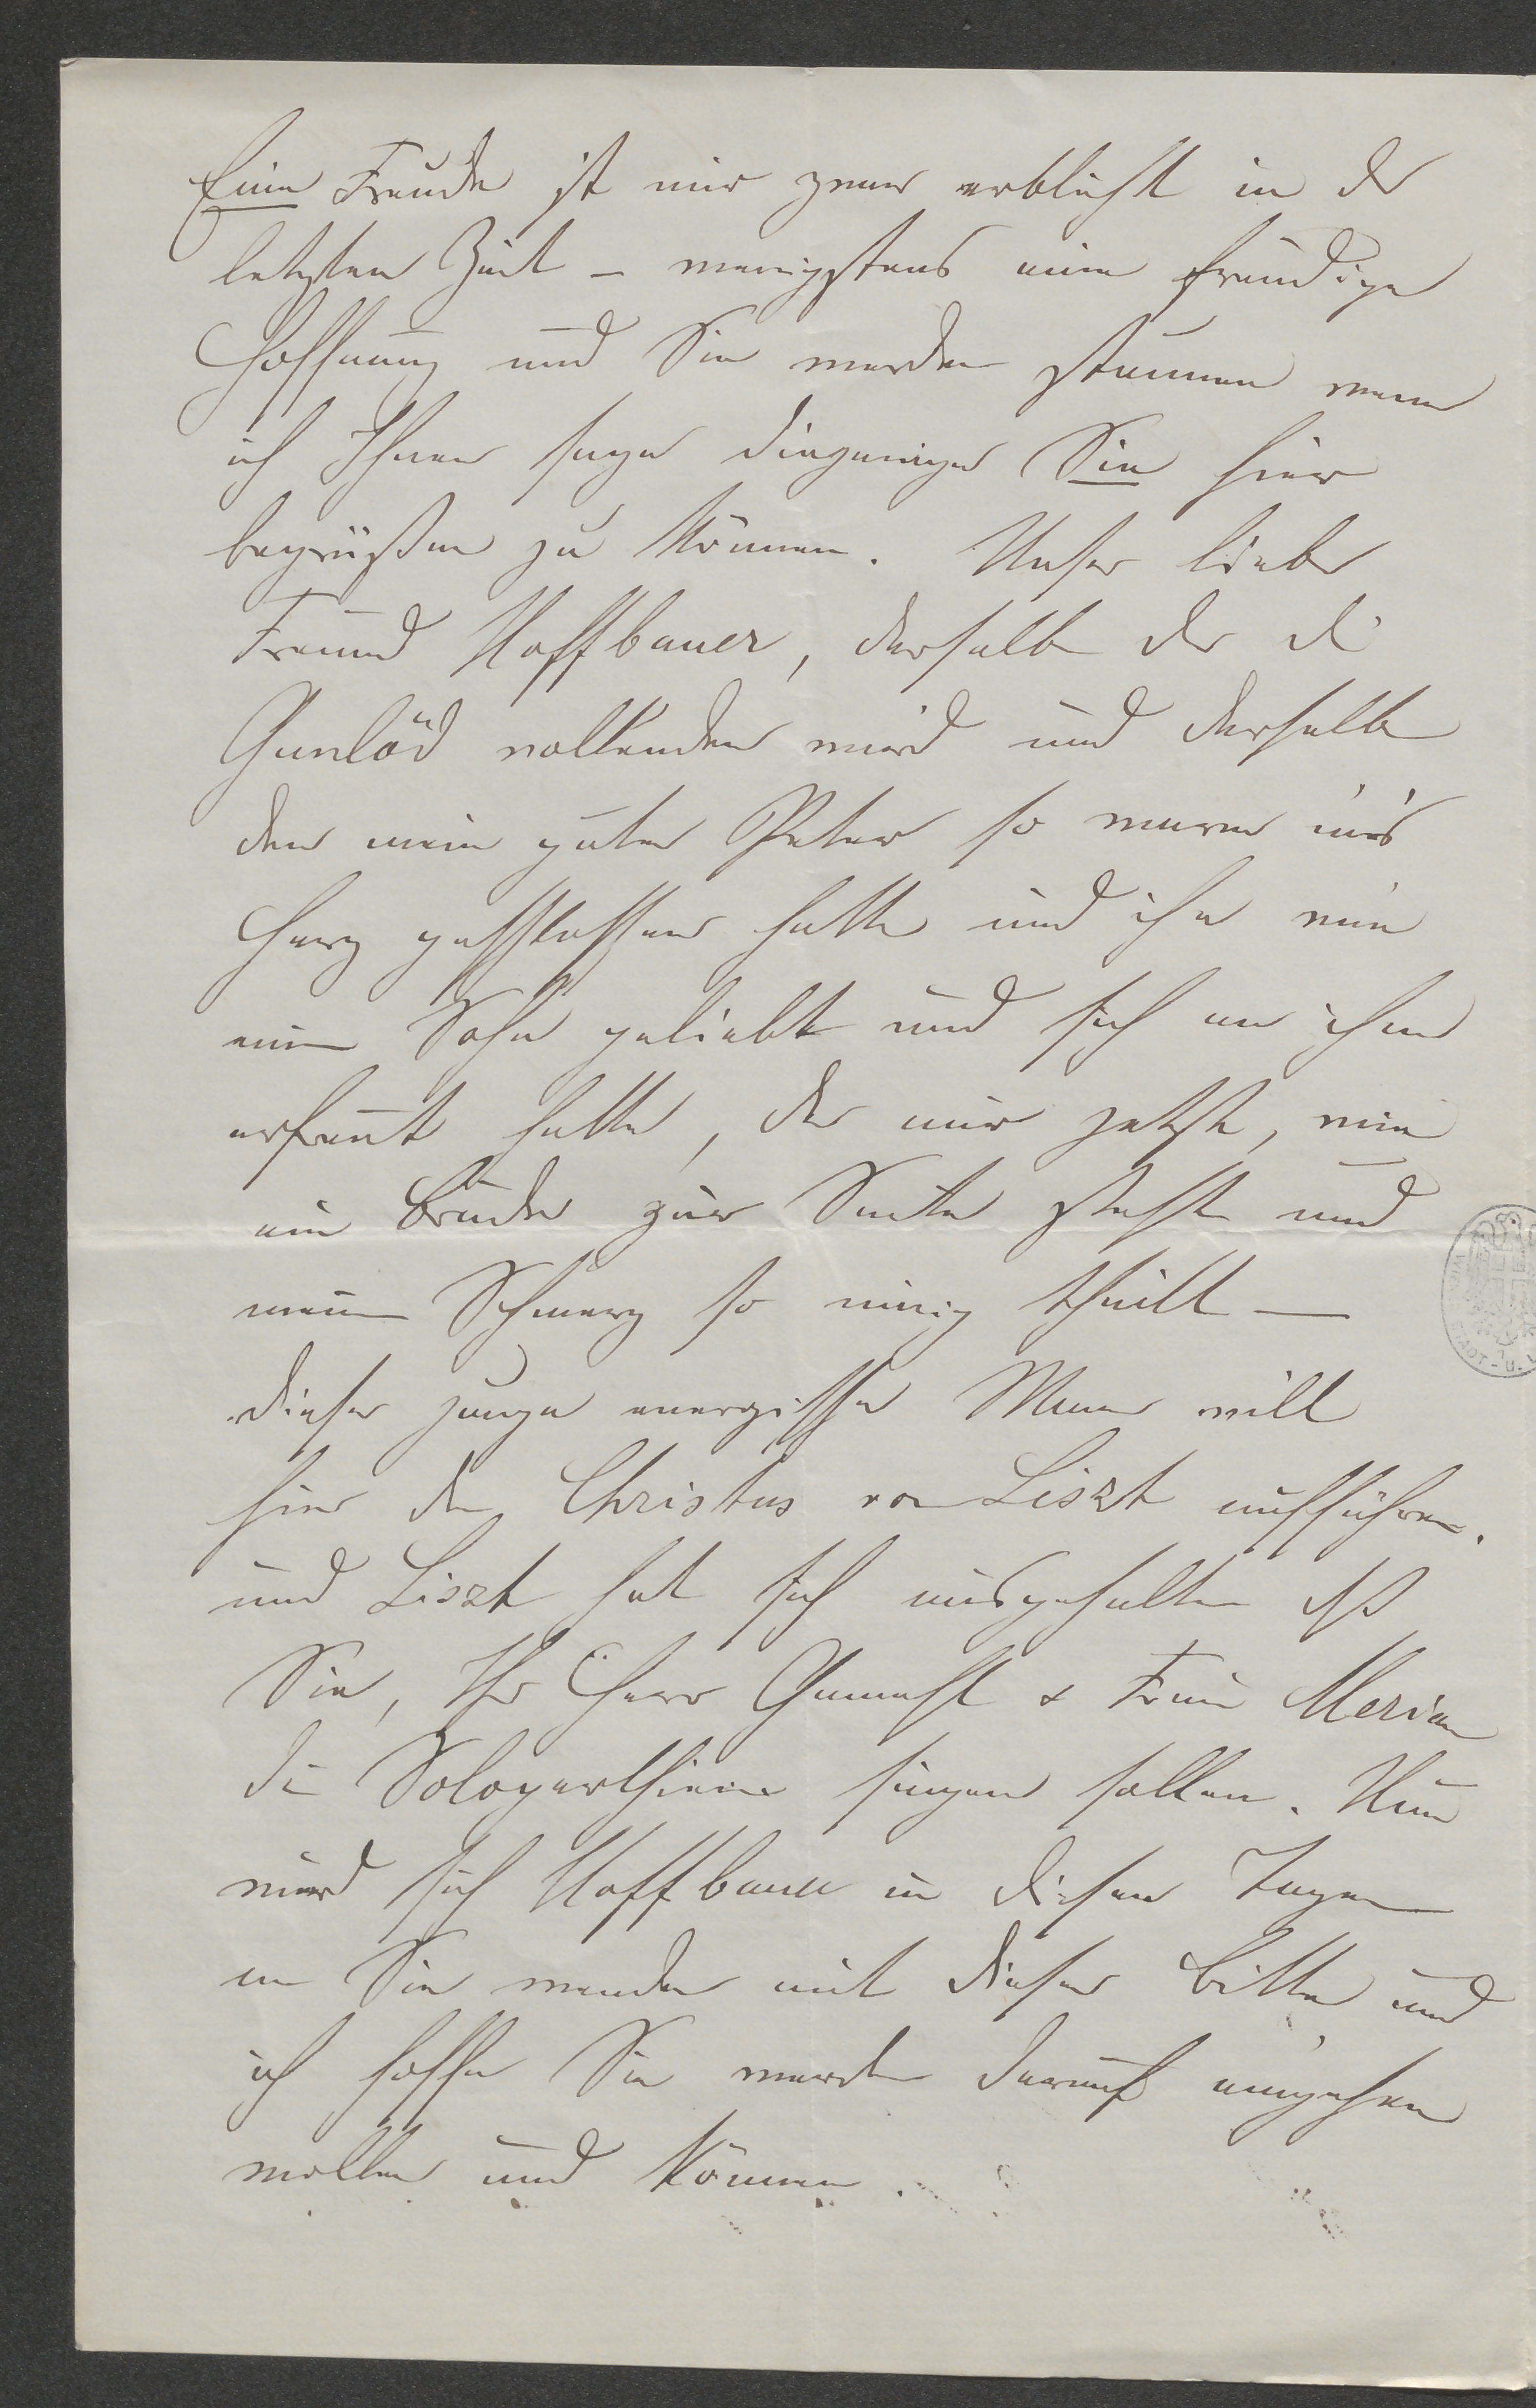 Eine Freude ist mir zwar erblüht in der
letzten Zeit – wenigstens eine freudige
Hoffnung und Sie werden staunen wenn
ich Ihnen sage diejenige Sie hier
begrüßen zu können. Unser lieber
Freund Hoffbauer, derselbe der die
Gunlöd vollenden wird und derselbe
den mein guter Peter so warm in's
Herz geschlossen hatte und ihn wie
einen Sohn geliebt und sich an ihm
erfreut hatte, der mir jetzt, wie
ein Bruder zur Seite steht und
meinen Schmerz so innig theilt —
dieser junge energische Mann will
hier den Christus von Liszt aufführen.
und Liszt hat sich ausgehalten daß
Sie, Ihr Herr Gemahl & Frau Merian
die Soloparthieen singen sollen. Nun
wird sich Hoffbauer in diesen Tagen
an Sie wenden mit dieser Bitte und
ich hoffe Sie werden darauf eingehen
wollen und können.
STADT-U.